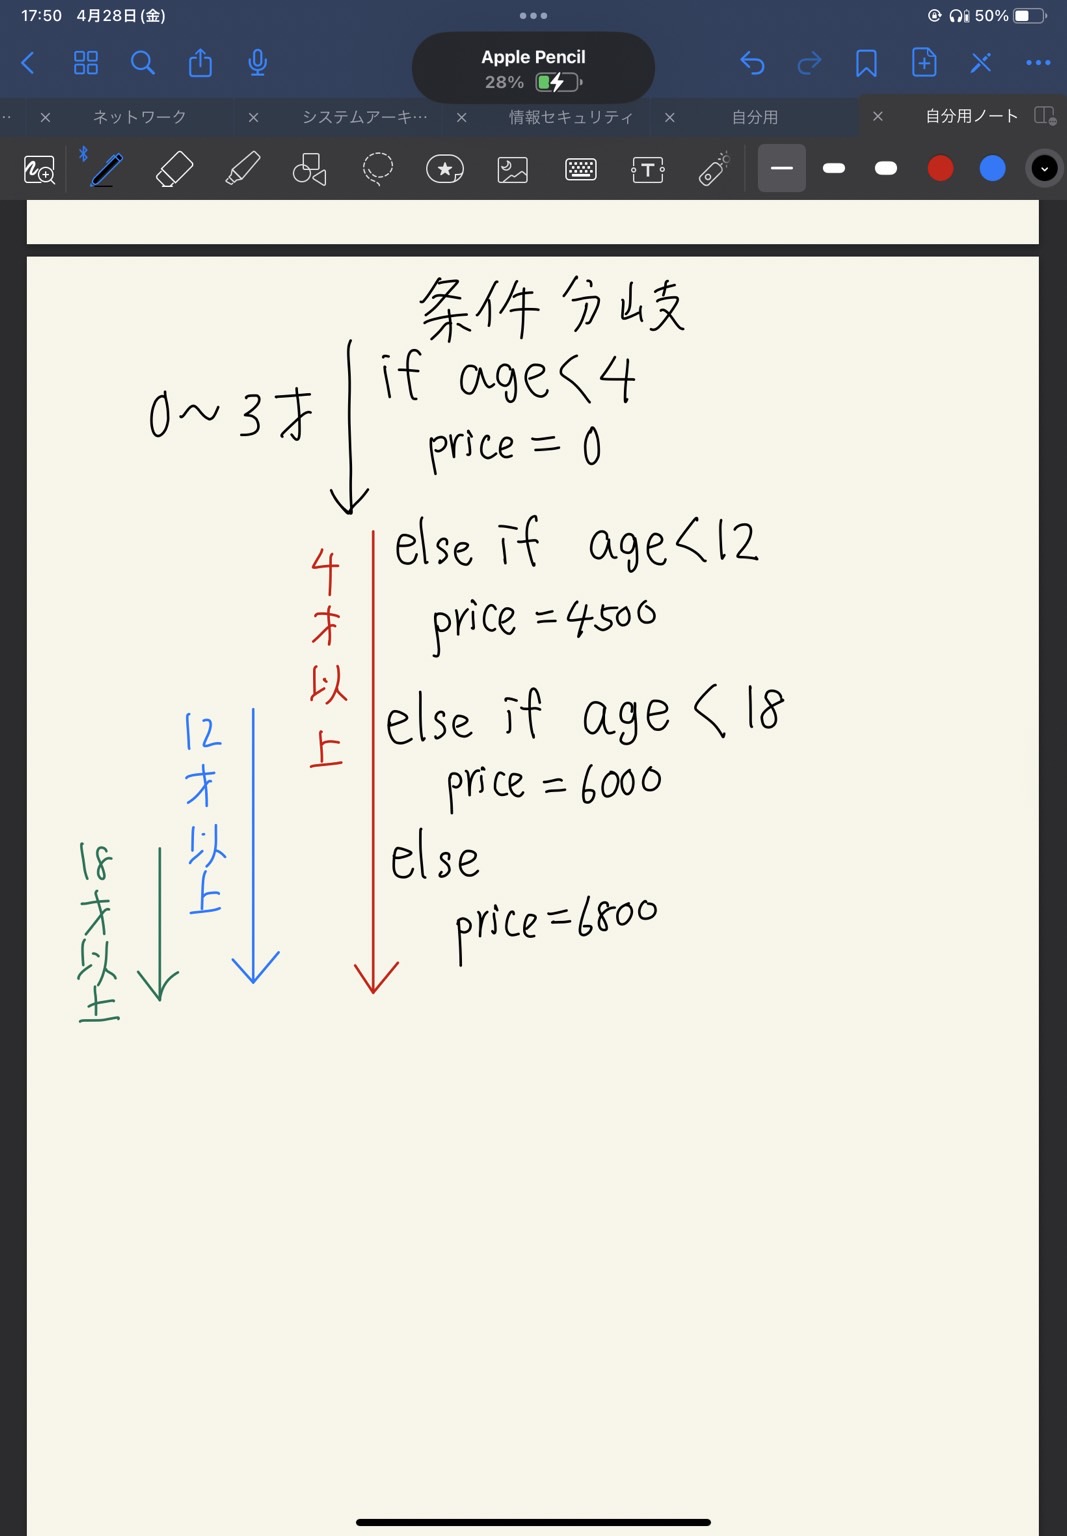 17:50 4月28日(金)
50%
Apple Pencil
28%
ネットワーク
システムアーキ…
情報セキュリティ
自分用
自分用ノート
条件分岐
if age<4
0〜3才
price = 0
else if age<12
price =4500
4才以上
else if age < 18
price = 6000
12才以上
else
price=6800
18才以上